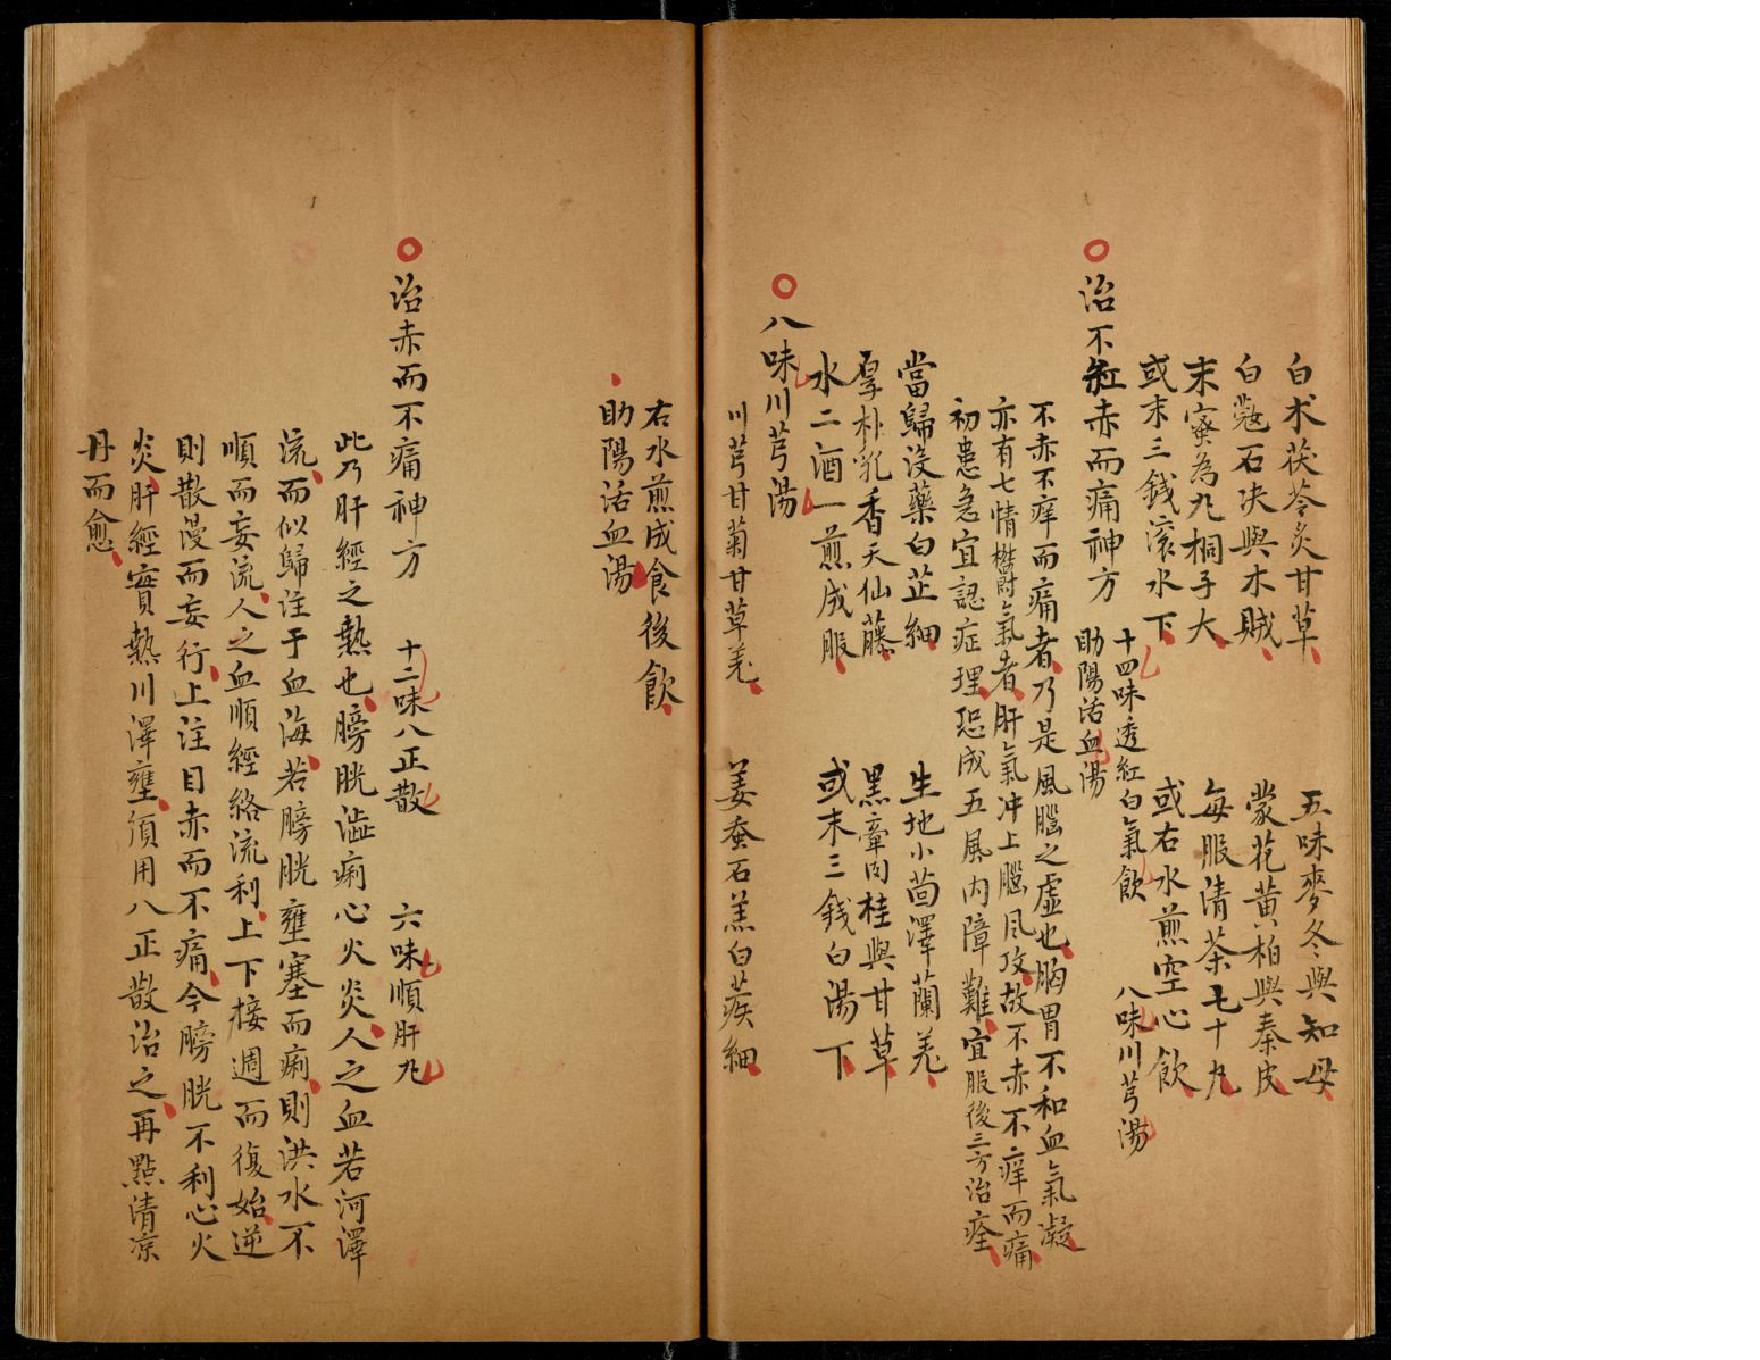 白朮茯苓炙甘草 五味麥冬與知母
白蔻石决與木賊 蒙花黄柏與秦皮
末蜜為丸桐子大 每服清茶七十丸
或末三錢滚水下 或右水煎空心飲
十四味透紅白氣飲 八味川芎湯
治不紅赤而痛神方 助陽活血湯
不赤不痒而痛者乃是風腦之虚也胸胃不和血氣凝
亦有七情欝氣者肝氣冲上腦风攻故不赤不痒而痛
初患急宜認症理恐成五風内障難宜服後三方治痊
當歸没藥白芷細 生地小茴澤蘭羌
厚朴乳香天仙藤 黑牽肉桂與甘草
水二酒一煎成服 或末三錢白湯下
八味川芎湯
川芎甘菊甘草羌 姜蚕石羔白蒺細
右水煎成食後飲
助陽活血湯
治赤而不痛神方 十二味八正散 六味順肝丸
此乃肝經之熱也膀胱澁痢心火炎人之血若河澤
流而似歸注于血海若膀胱壅塞而痢則洪水不
順而妄流人之血順經絡流利上下接週而復始逆
則散漫而妄行上注目赤而不痛今膀胱不利心火
炎肝經實熱川澤壅須用八正散治之再點清凉
丹而愈